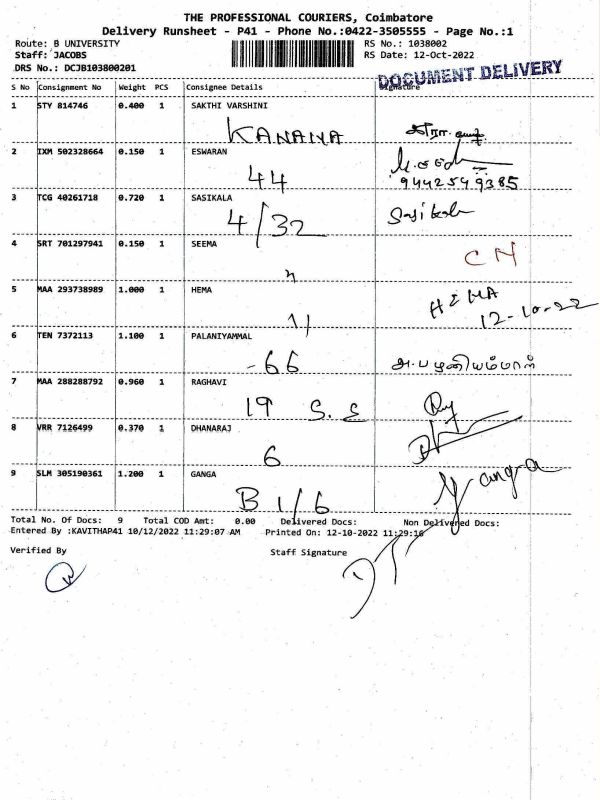 THE PROFESSIONAL COURIERS, Coimbatore
Delivery Runsheet - P41 - Phone No.:0422-3505555 - Page No.:1
Route: B UNIVERSITY
RS No.: 1038002
Staff: JACOBS
RS Date: 12-Oct-2022
DRS No.: DCJB103800201
DOCUMENT DELIVERY
S No Consignment No Weight PCS Consignee Details Signature
1 STY 814746 0.400 1 SAKTHI VARSHINI
KANAIYA
2 IXM 502328664 0.150 1 ESWARAN
44
9442549385
3 TCG 40261718 0.720 1 SASIKALA
4/32 Sasikala
4 SRT 701297941 0.150 1 SEEMA
CN
5 MAA 293738989 1.000 1 HEMA
HEMA
11 12-10-22
6 TEN 7372113 1.100 1 PALANIYAMMAL
-66 அ.பழனியம்மாள்
7 MAA 288288792 0.960 1 RAGHAVI
19 S.S
8 VRR 7126499 0.370 1 DHANARAJ
6
9 SLM 305190361 1.200 1 GANGA
B 1/6 ganga
Total No. Of Docs: 9 Total COD Amt: 0.00 Delivered Docs: Non Delivered Docs:
Entered By :KAVITHAP41 10/12/2022 11:29:07 AM Printed On: 12-10-2022 11:29:16
Verified By Staff Signature